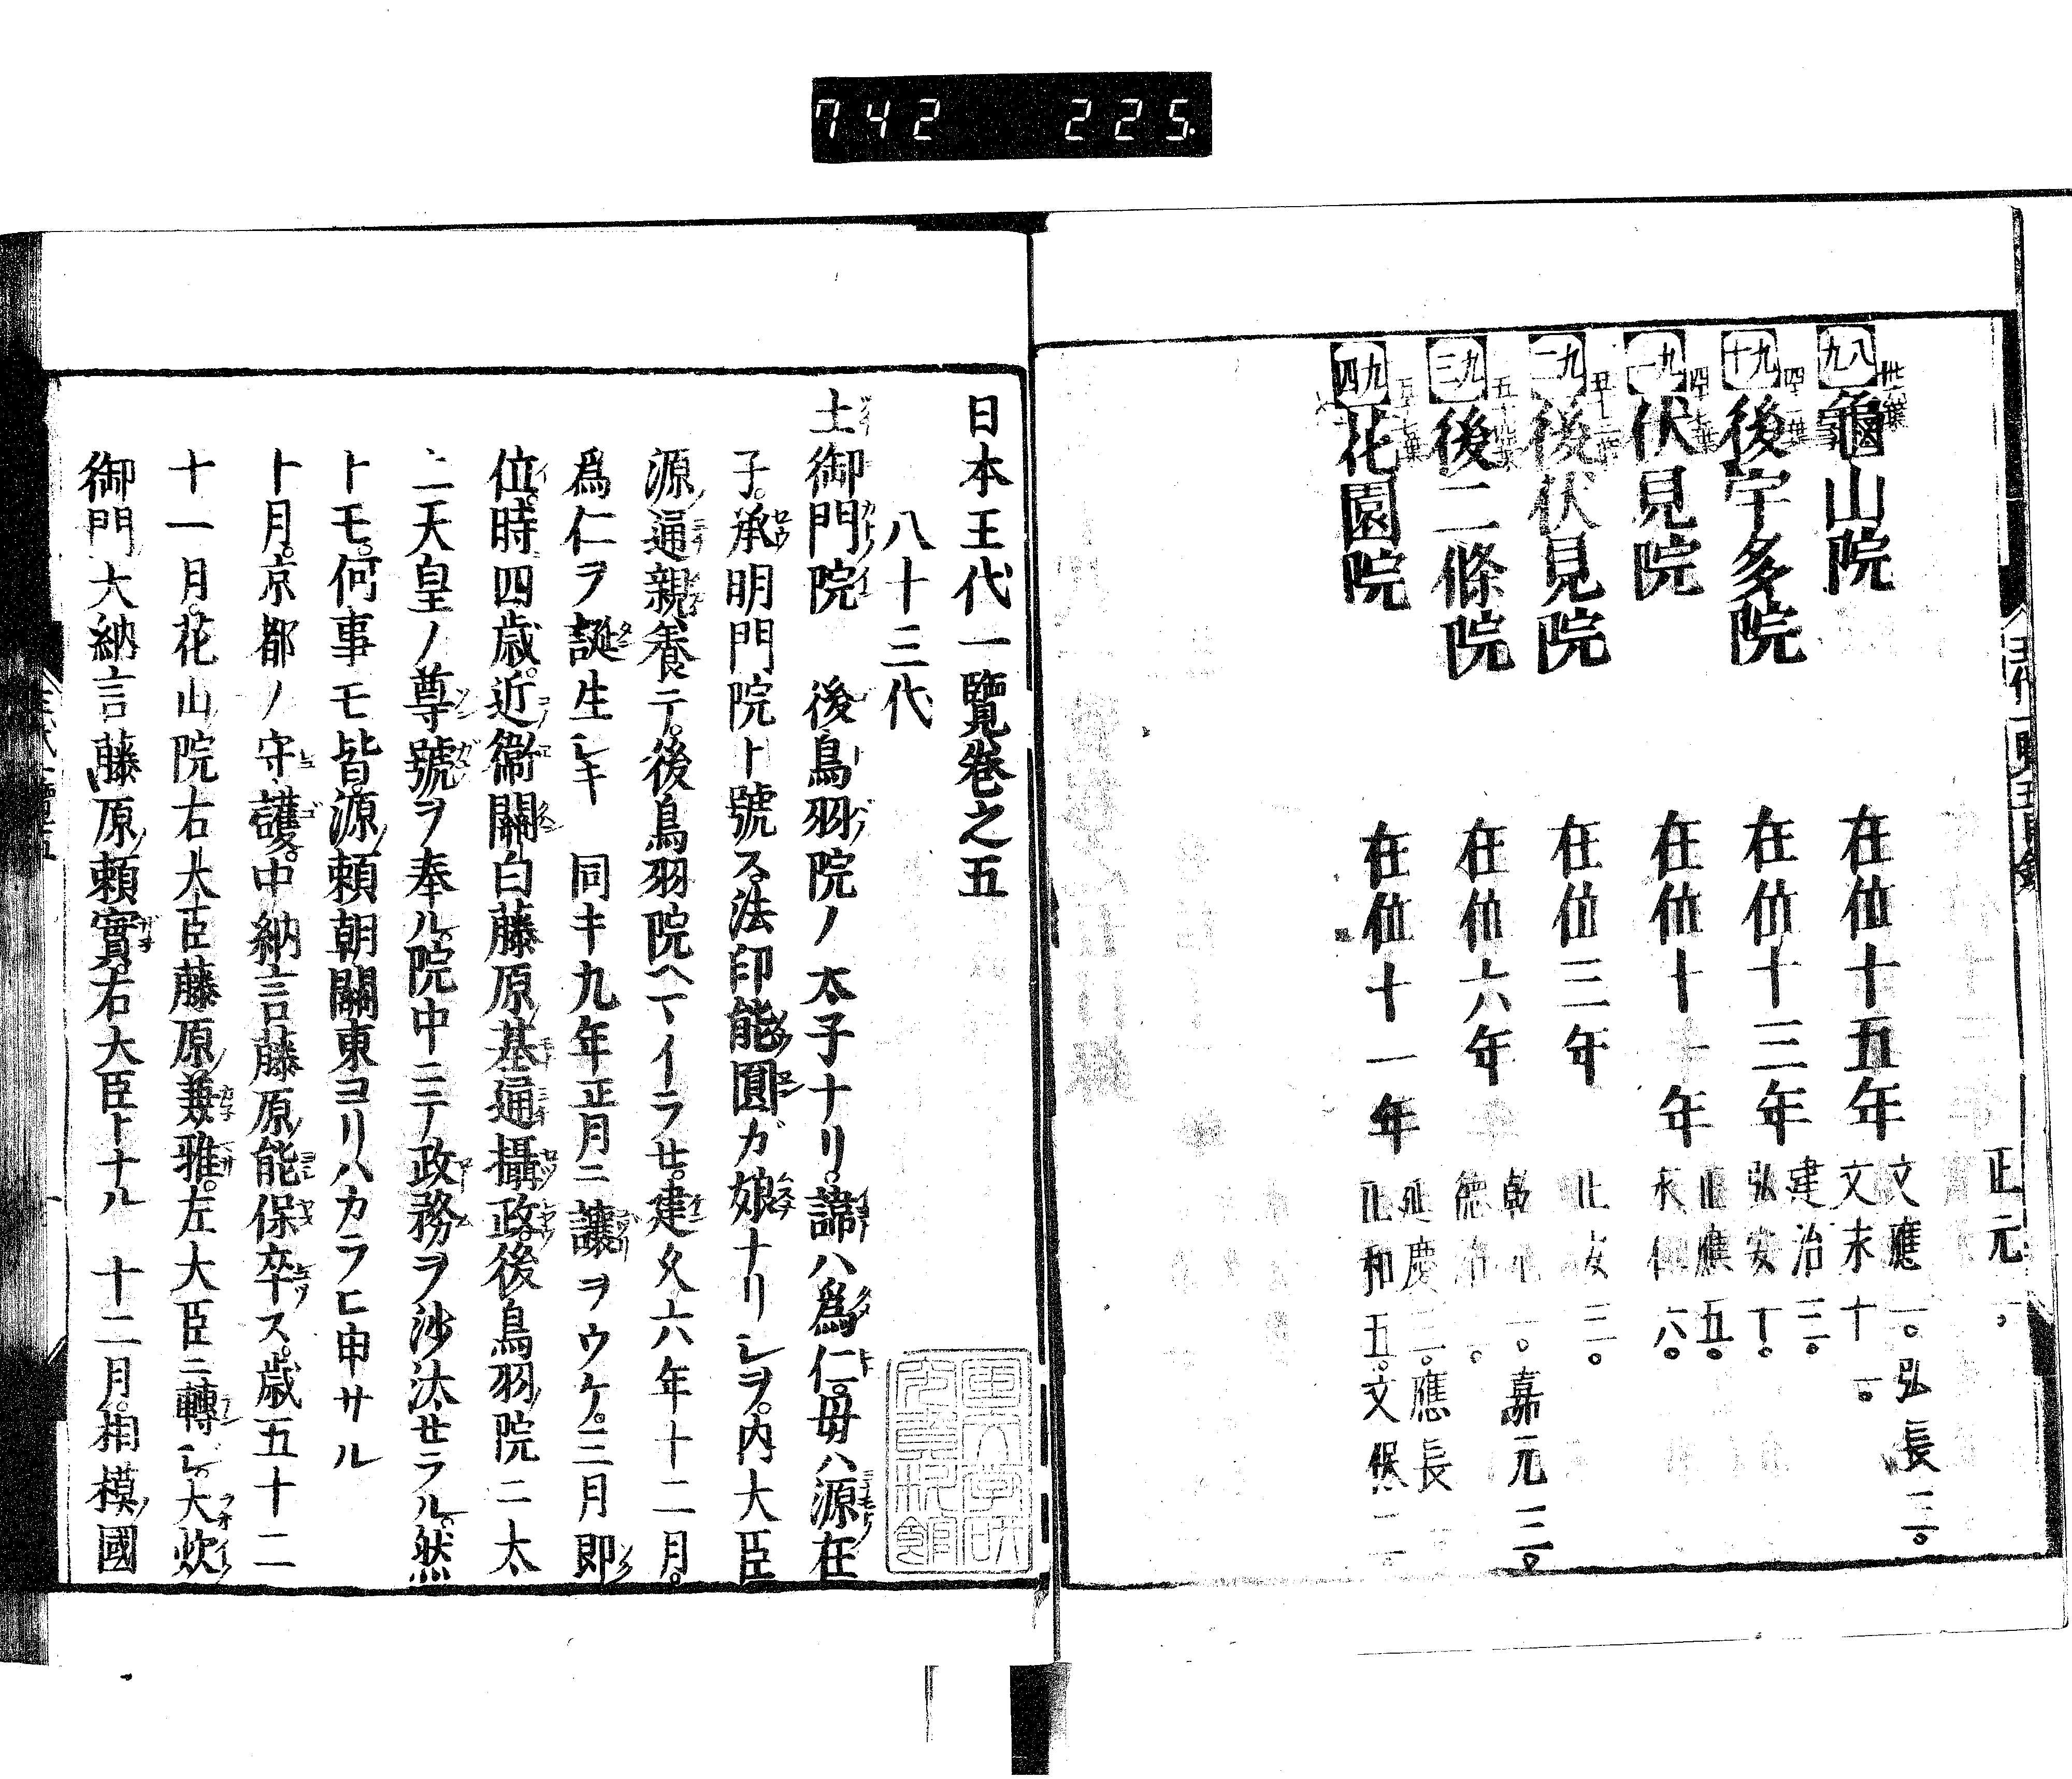 742 225.
正元一。
八九 龜山院 在位十五年 文應一。弘長三。
文永十一。
九十 後宇多院 在位十三年 建治三。
弘安十。
九一 伏見院 在位十一年 正應五。
永仁六。
九二 後伏見院 在位三年 正安三。
九三 後二條院 在位六年 乾元一。嘉元三。
德治
九四 花園院 在位十一年 延慶三。應長
正和五。文保二
日本王代一覽卷之五
八十三代
土御門院 後鳥羽院ノ太子ナリ。諱ハ爲仁。母ハ源在
子。承明門院ト號ス。法印能圓ガ娘ナリシヲ。内大臣
源ノ通親養テ。後鳥羽院ヘマイラセ。建久六年十二月。
爲仁ヲ誕生シキ 同キ九年正月ニ讓ヲウケ。三月即
位。時四歳。近衞關白藤原ノ基通攝政。後鳥羽院ニ太
上天皇ノ尊號ヲ奉ル。院中ニテ政務ヲ沙汰セラル。然
トモ。何事モ皆源ノ頼朝關東ヨリハカラヒ申サル
十月。京都ノ守護。中納言藤原ノ能保卒ス。歳五十二
十一月。花山院右大臣藤原ノ兼雅。左大臣ニ轉シ。大炊
御門大納言藤原ノ頼實。右大臣トナル 十二月。相模ノ國